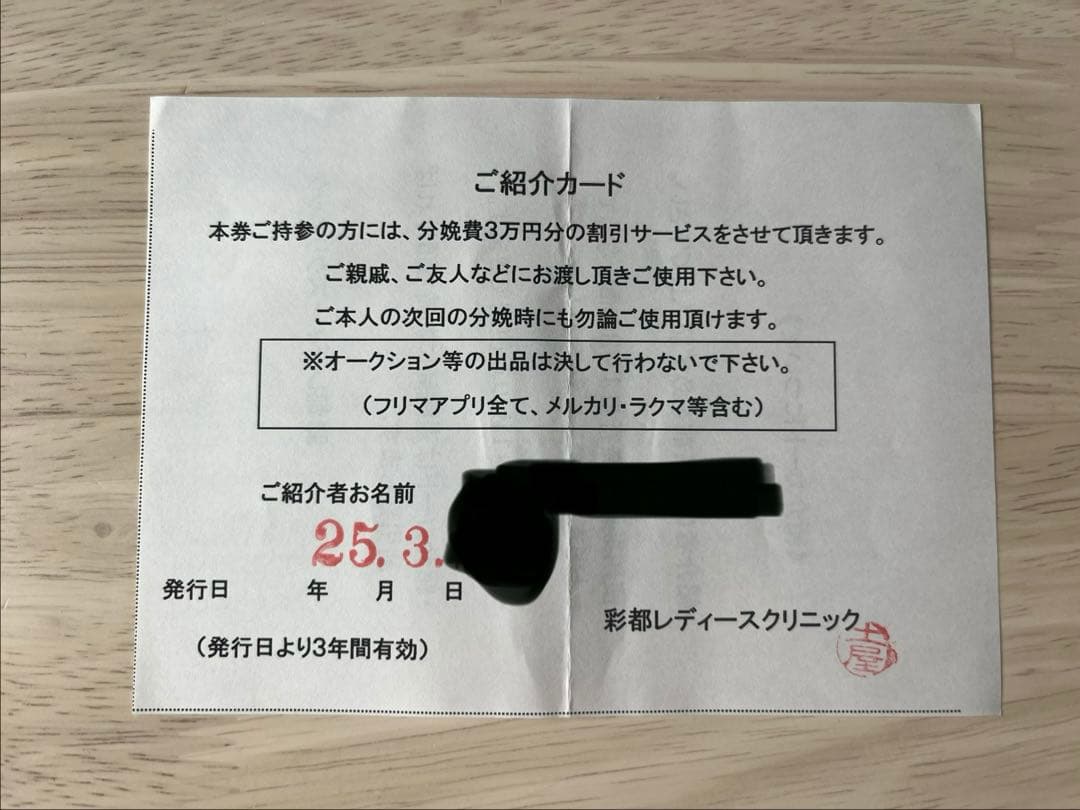 ご紹介カード
本券ご持参の方には、分娩費3万円分の割引サービスをさせて頂きます。
ご親戚、ご友人などにお渡し頂きご使用下さい。
ご本人の次回の分娩時にも勿論ご使用頂けます。
※オークション等の出品は決して行わないで下さい。
(フリマアプリ全て、メルカリ・ラクマ等含む)
ご紹介者お名前
25. 3.
発行日 年 月 日
彩都レディースクリニック
土屋
(発行日より3年間有効)